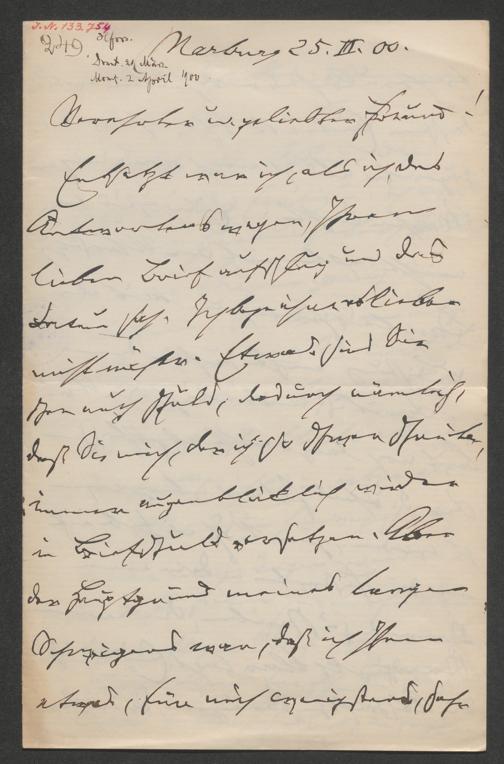 I.N. 133.754
249
Marburg 25. III. 00.
Verehrter u. geliebter Freund!
Entsetzt war ich, als ich, des
Antwortens wegen, Ihren
lieben Brief aufschlug und das
Datum sah. Ich begreife
nicht mehr. Etwas sind Sie
ja auch Schuld, dadurch nämlich,
daß Sie mich, der ich so Ihnen
immer augenblicklich wieder
in Briefschuld versetzen. Aber
der Hauptgrund meines langen
Schweigens war, daß ich Ihnen
etwas, für mich wenigstens, sehr